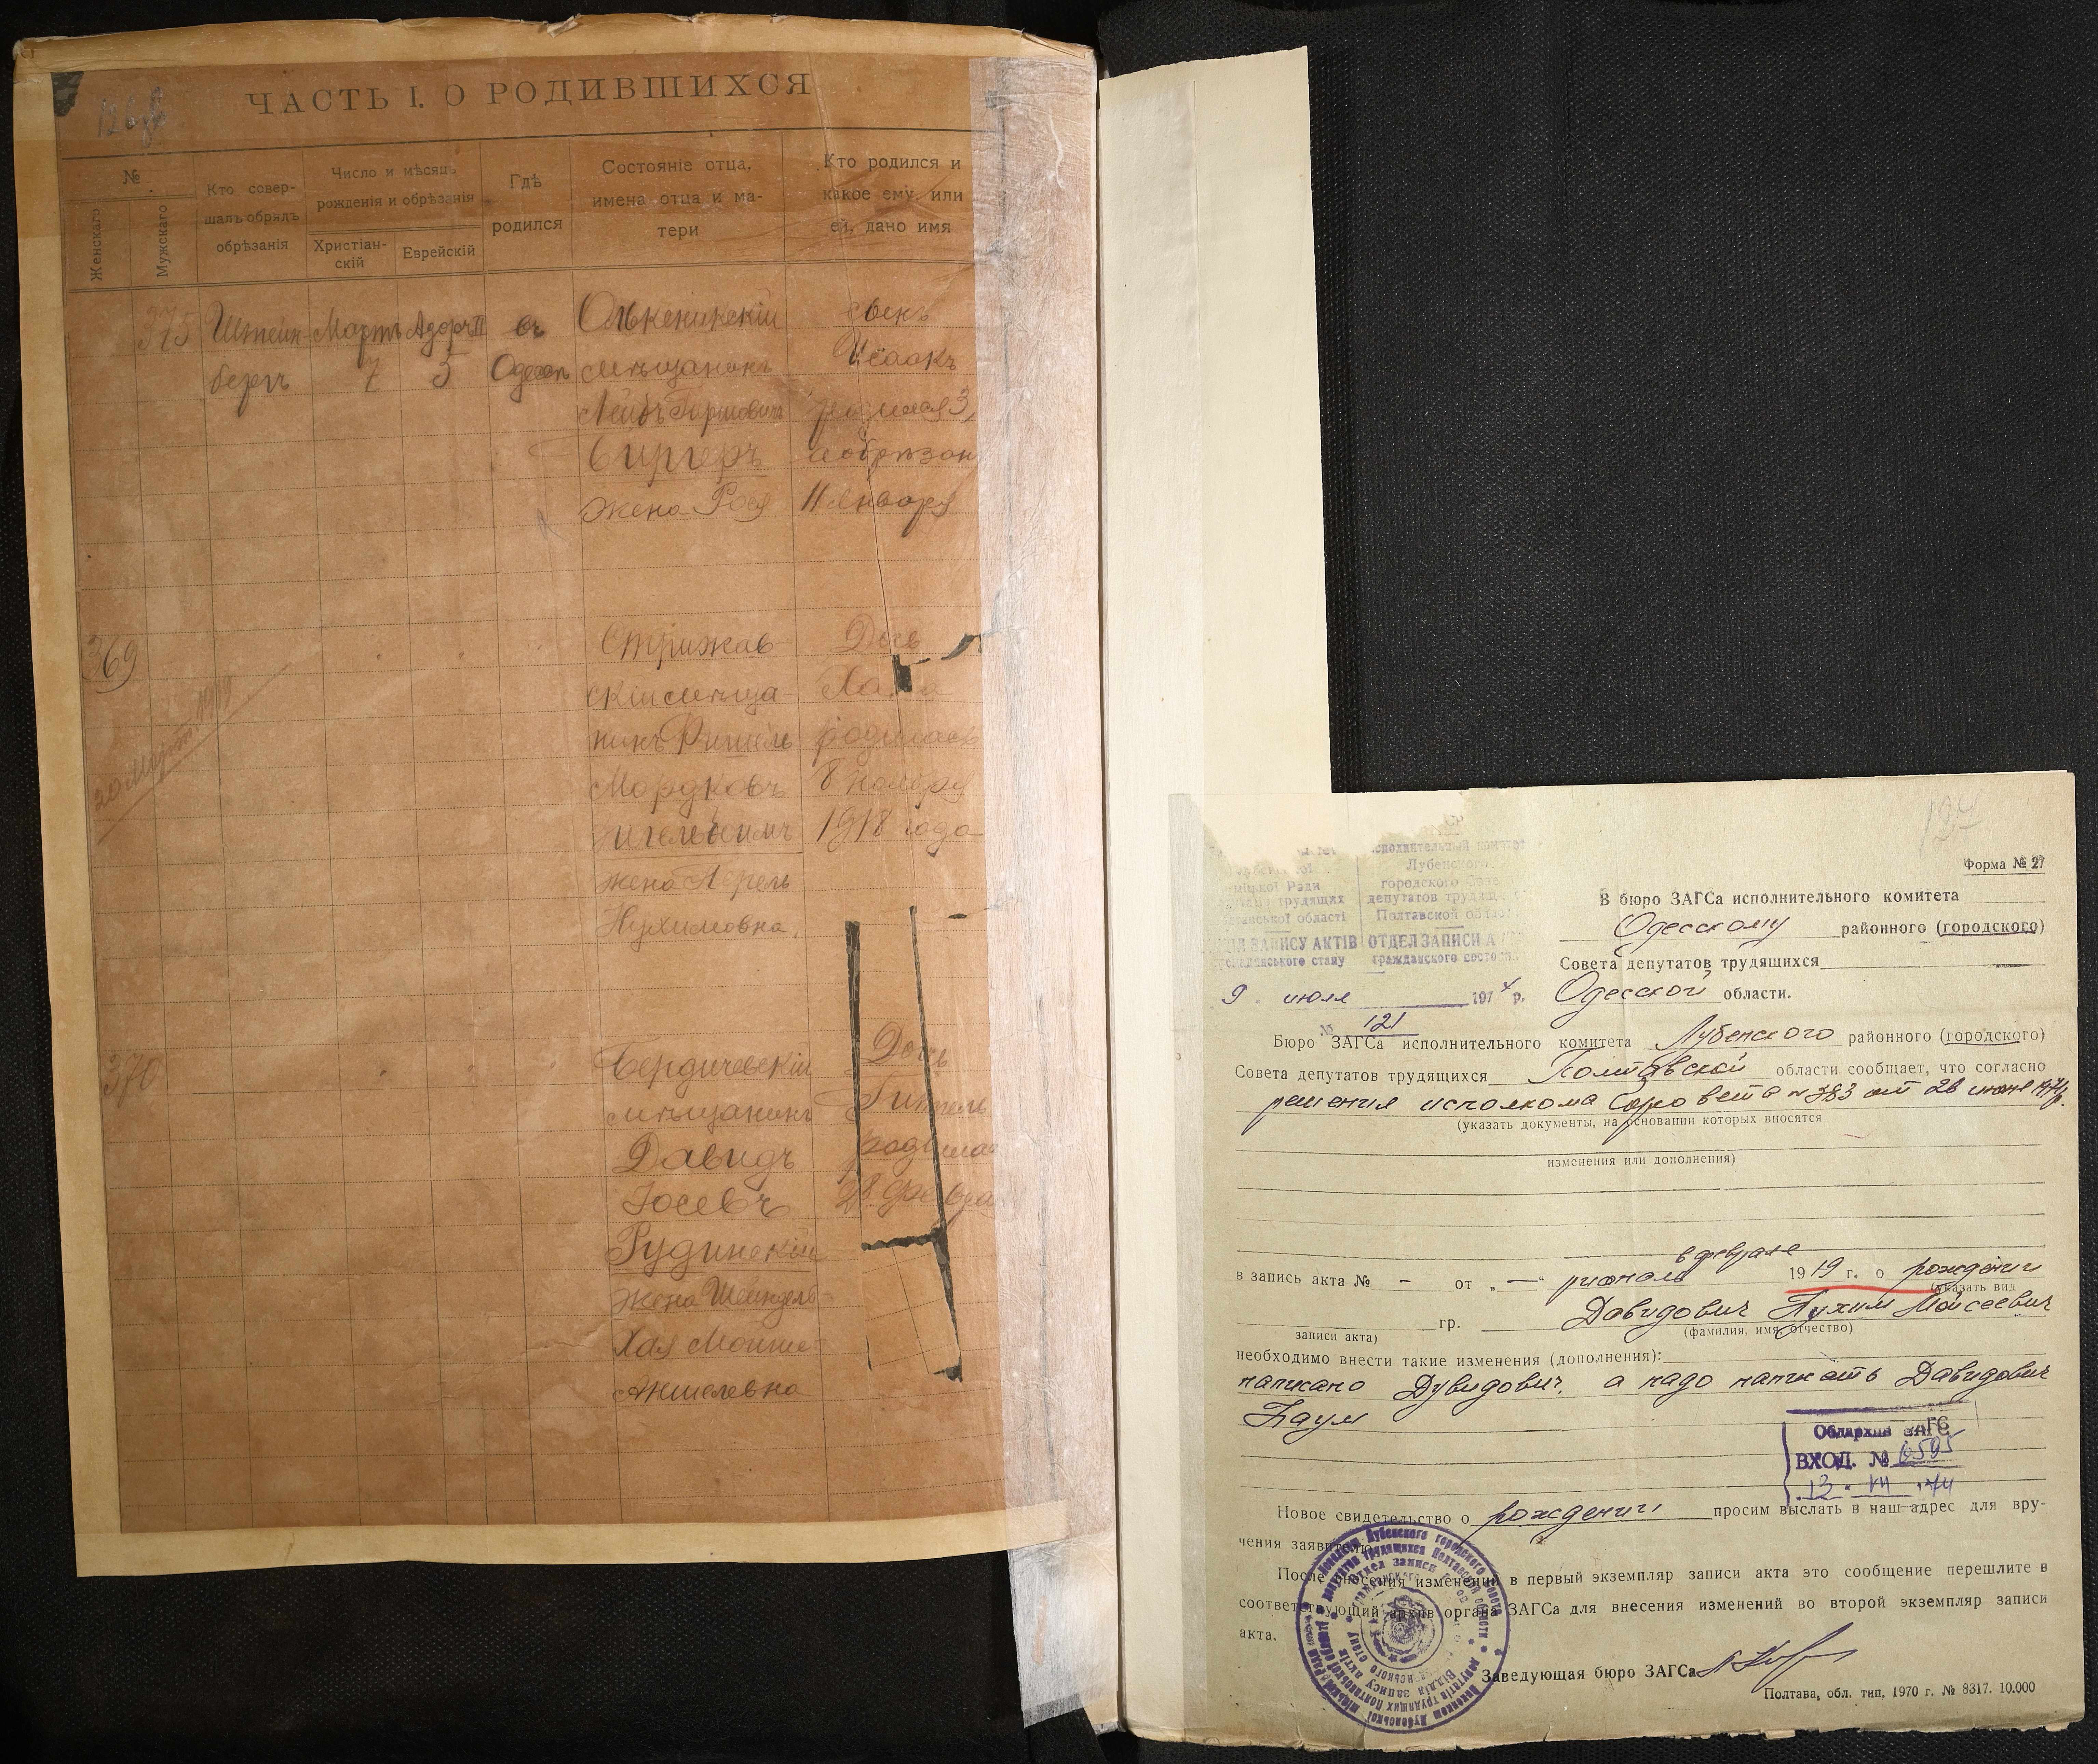 ЧАСТЬ I. О РОДИВШИХСЯ
№
Женскаго
Мужскаго
Кто совер-
шалъ обрядъ
обрѣзанія
Число и мѣсяцъ
рожденія и обрѣзанія
Христіан-
скій
Еврейскій
Гдѣ
родился
Состояніе отца,
имена отца и ма-
тери
Кто родился и
какое ему, или
ей, дано имя
375
Штейн-
бергъ
Мартъ
7
Адаръ II
5
въ
Одессѣ
Олькеникскій
мѣщанинъ
Лейбъ Гершовичъ
Сиргеръ
жена Рося
сынъ
Исаакъ
родился 3,
а обрѣзан
11 Января
369
20 Марта 1919
Стрижав-
скій мѣща-
нинъ
Мордковъ
жена Перль
Нухимовна.
Дочь
родилась
8 ноября
1918 года
370
Бердичевскій
мѣщанинъ
Давидъ
Іосевъ
Рудинскій
жена Шейндель-
Хая Мошко-
Аншелевна
Дочь
Гиттель
родилас
28 февра
127
Форма № 27
Лубенского
городского
депутатов трудящ
Полтавской област
ЗАПИСУ АКТІВ
ОТДЕЛ ЗАПИСИ А
громадянського стану
гражданского состо
9 июля 1974 р.
№ 121
В бюро ЗАГСа исполнительного комитета
Одесскому районного (городского)
Совета депутатов трудящихся
Одесской области.
Бюро ЗАГСа исполнительного комитета Лубенского районного (городского)
Совета депутатов трудящихся Полтавской области сообщает, что согласно
решения исполкома Горсовета № 383 от 26 июня 1974 г.
(указать документы, на основании которых вносятся
изменения или дополнения)
в феврале
в запись акта № - от „ — “ 1919 г. о рождении
(указать вид
гр. Давидович Нухим Мойсеевич
записи акта)
(фамилия, имя, отчество)
необходимо внести такие изменения (дополнения):
написано Дувидович, а надо написать Давидович
Наум
Облархив ЗАГС
ВХОД. № 6595
13. VII. 74
Новое свидетельство о рождении просим выслать в наш адрес для вру-
чения заявителю.
После внесения изменений в первый экземпляр записи акта это сообщение перешлите в
соответствующий архив органа ЗАГСа для внесения изменений во второй экземпляр записи
акта.
Заведующая бюро ЗАГСа
Полтава, обл. тип. 1970 г. № 8317. 10.000